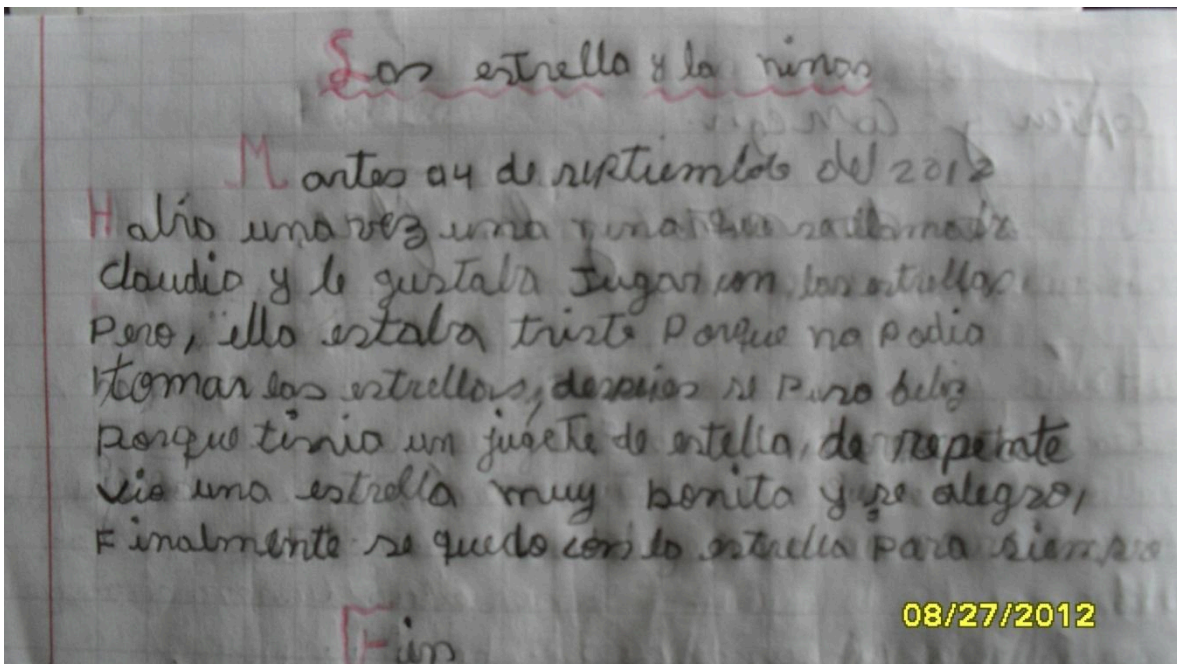 Las estrella y la ninas
Martes 04 de septiembre del 2012
Habia una vez una nina que se llamaba
Claudia y le gustaba Jugar con las estrellas
Pero, ella estaba triste Porque no Podia
tomar las estrellas, despues se Puso feliz
porque tinia un jugete de estella, de repente
vio una estrella muy bonita y se alegro,
Finalmente se quedo con la estrella para siempre
Fin
08/27/2012